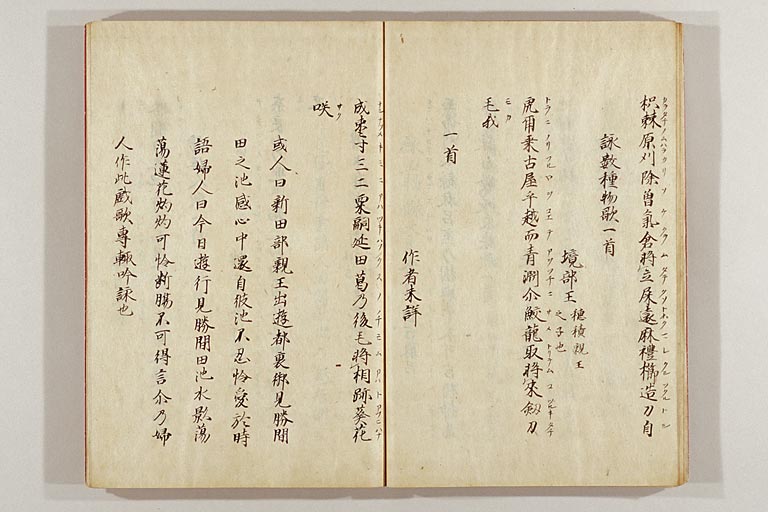 枳棘原刈除曽氣倉将立屎遠麻禮櫛造刀自
詠数種物歌一首
境部王 穂積親王之子也
虎尓乗古屋乎越而青淵尓鮫龍取将来釼刀
毛我
一首
作者未詳
成棗寸三二粟嗣延田葛乃後毛将相跡葵花
咲
或人曰新田部親王出遊都裏御見勝間
田之池感心中還自彼池不忍怜愛於時
語婦人曰今日遊行見勝間田池水影蕩
蕩蓮花灼灼可怜断腸不可得言尓乃婦
人作此戯歌専輙吟詠也